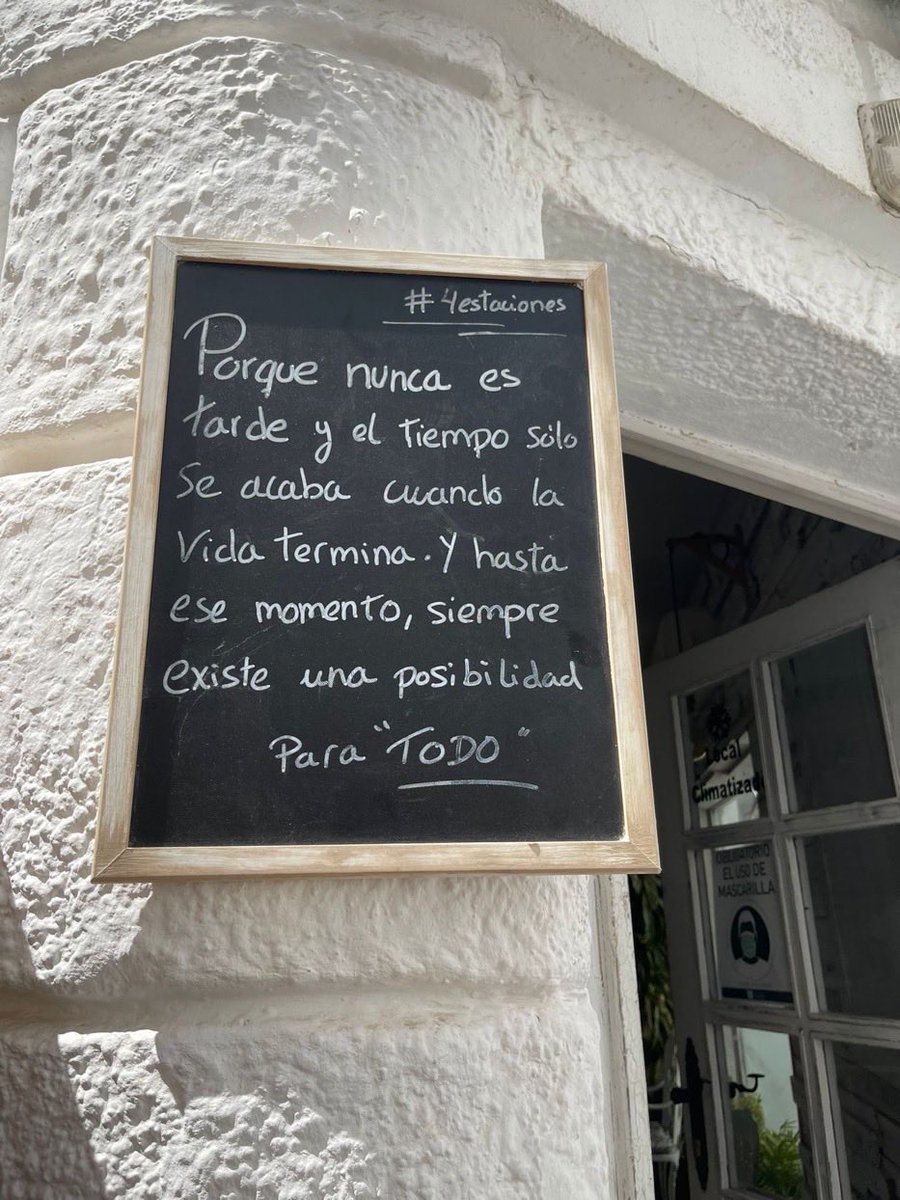 # 4estaciones
Porque nunca es
tarde y el tiempo sólo
se acaba cuando la
vida termina. Y hasta
ese momento, siempre
existe una posibilidad
Para "TODO"
Local
Climatizado
OBLIGATORIO
EL USO DE
MASCARILLA